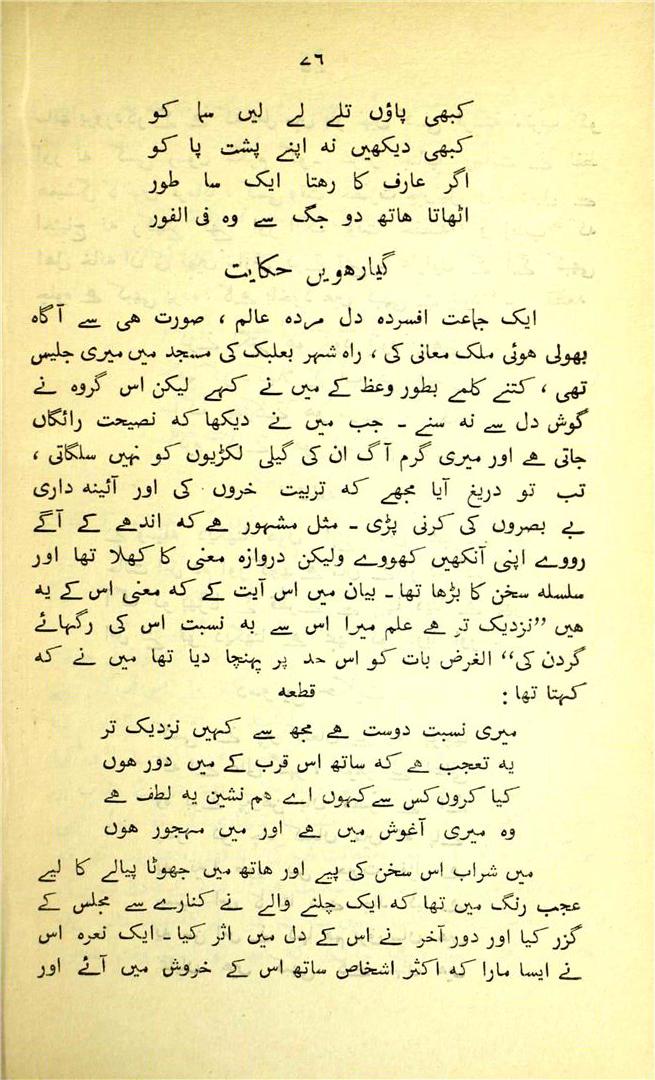 ۷٦
کبھی پاؤں تلے لے لیں سما کو
کبھی دیکھیں نہ اپنے پشت پا کو
اگر عارف کا رھتا ایک سا طور
اٹھاتا ھاتھ دو جگ سے وہ فی الفور
گیارھویں حکایت
ایک جماعت افسردہ دل مردہ عالم ، صورت ھی سے آگاہ
بھولی ھوئی ملک معانی کی ، راہ شہر بعلبک کی مسجد میں میری جلیس
تھی ، کتنے کلمے بطور وعظ کے میں نے کہے لیکن اس گروہ نے
گوش دل سے نہ سنے ۔ جب میں نے دیکھا کہ نصیحت رائگاں
جاتی ہے اور میری گرم آگ ان کی گیلی لکڑیوں کو نہیں سلگاتی ،
تب تو دریغ آیا مجھے کہ تربیت خروں کی اور آئینہ داری
بے بصروں کی کرنی پڑی ۔ مثل مشہور ہے کہ اندھے کے آگے
رووے اپنی آنکھیں کھووے ولیکن دروازہ معنی کا کھلا تھا اور
سلسلہ سخن کا بڑھا تھا ۔ بیان میں اس آیت کے کہ معنی اس کے یہ
ھیں ”نزدیک تر ہے علم میرا اس سے بہ نسبت اس کی رگہائے
گردن کی“ الغرض بات کو اس حد پر پہنچا دیا تھا میں نے کہ
کہتا تھا : قطعہ
میری نسبت دوست ہے مجھ سے کہیں نزدیک تر
یہ تعجب ہے کہ ساتھ اس قرب کے میں دور ھوں
کیا کروں کس سے کہوں اے ھم نشین یہ لطف ہے
وہ میری آغوش میں ہے اور میں مہجور ھوں
میں شراب اس سخن کی پیے اور ھاتھ میں جھوٹا پیالے کا لیے
عجب رنگ میں تھا کہ ایک چلنے والے نے کنارے سے مجلس کے
گزر کیا اور دور آخر نے اس کے دل میں اثر کیا ۔ ایک نعرہ اس
نے ایسا مارا کہ اکثر اشخاص ساتھ اس کے خروش میں آئے اور